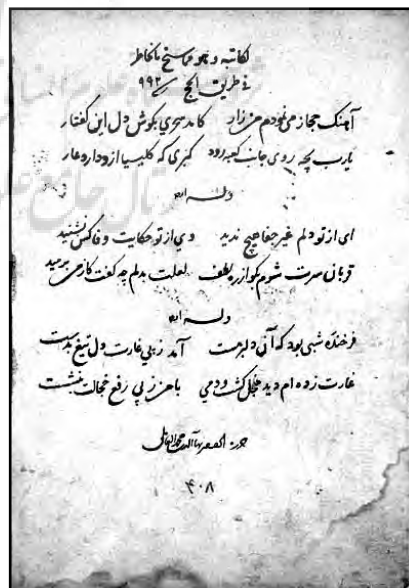 لکاتبه و هو مما سنح بالخاطر
فی طریق الحج سنه ۹۹۲
آهنک حجاز می‌نمودم من زار کامد سحری بکوش دل این کفتار
یارب بچه روی جانب کعبه رود کبری که کلیسیا ازو دارد عار
وله ایضا
ای از تو دلم غیر جفا هیچ ندید وی از تو حکایت وفا کس نشنید
قربان سرت شوم بکو از ره لطف لعلت بدلم چه کفت کز من برمید
وله ایضا
فرخنده شبی بود که آن دلبر مست آمد ز پی غارت دل تیغ بدست
غارت زده‌ام دید خجل کشت و دمی با من ز پی رفع خجالت بنشست
حرره بهاء الدین محمد العاملی
۴۰۸